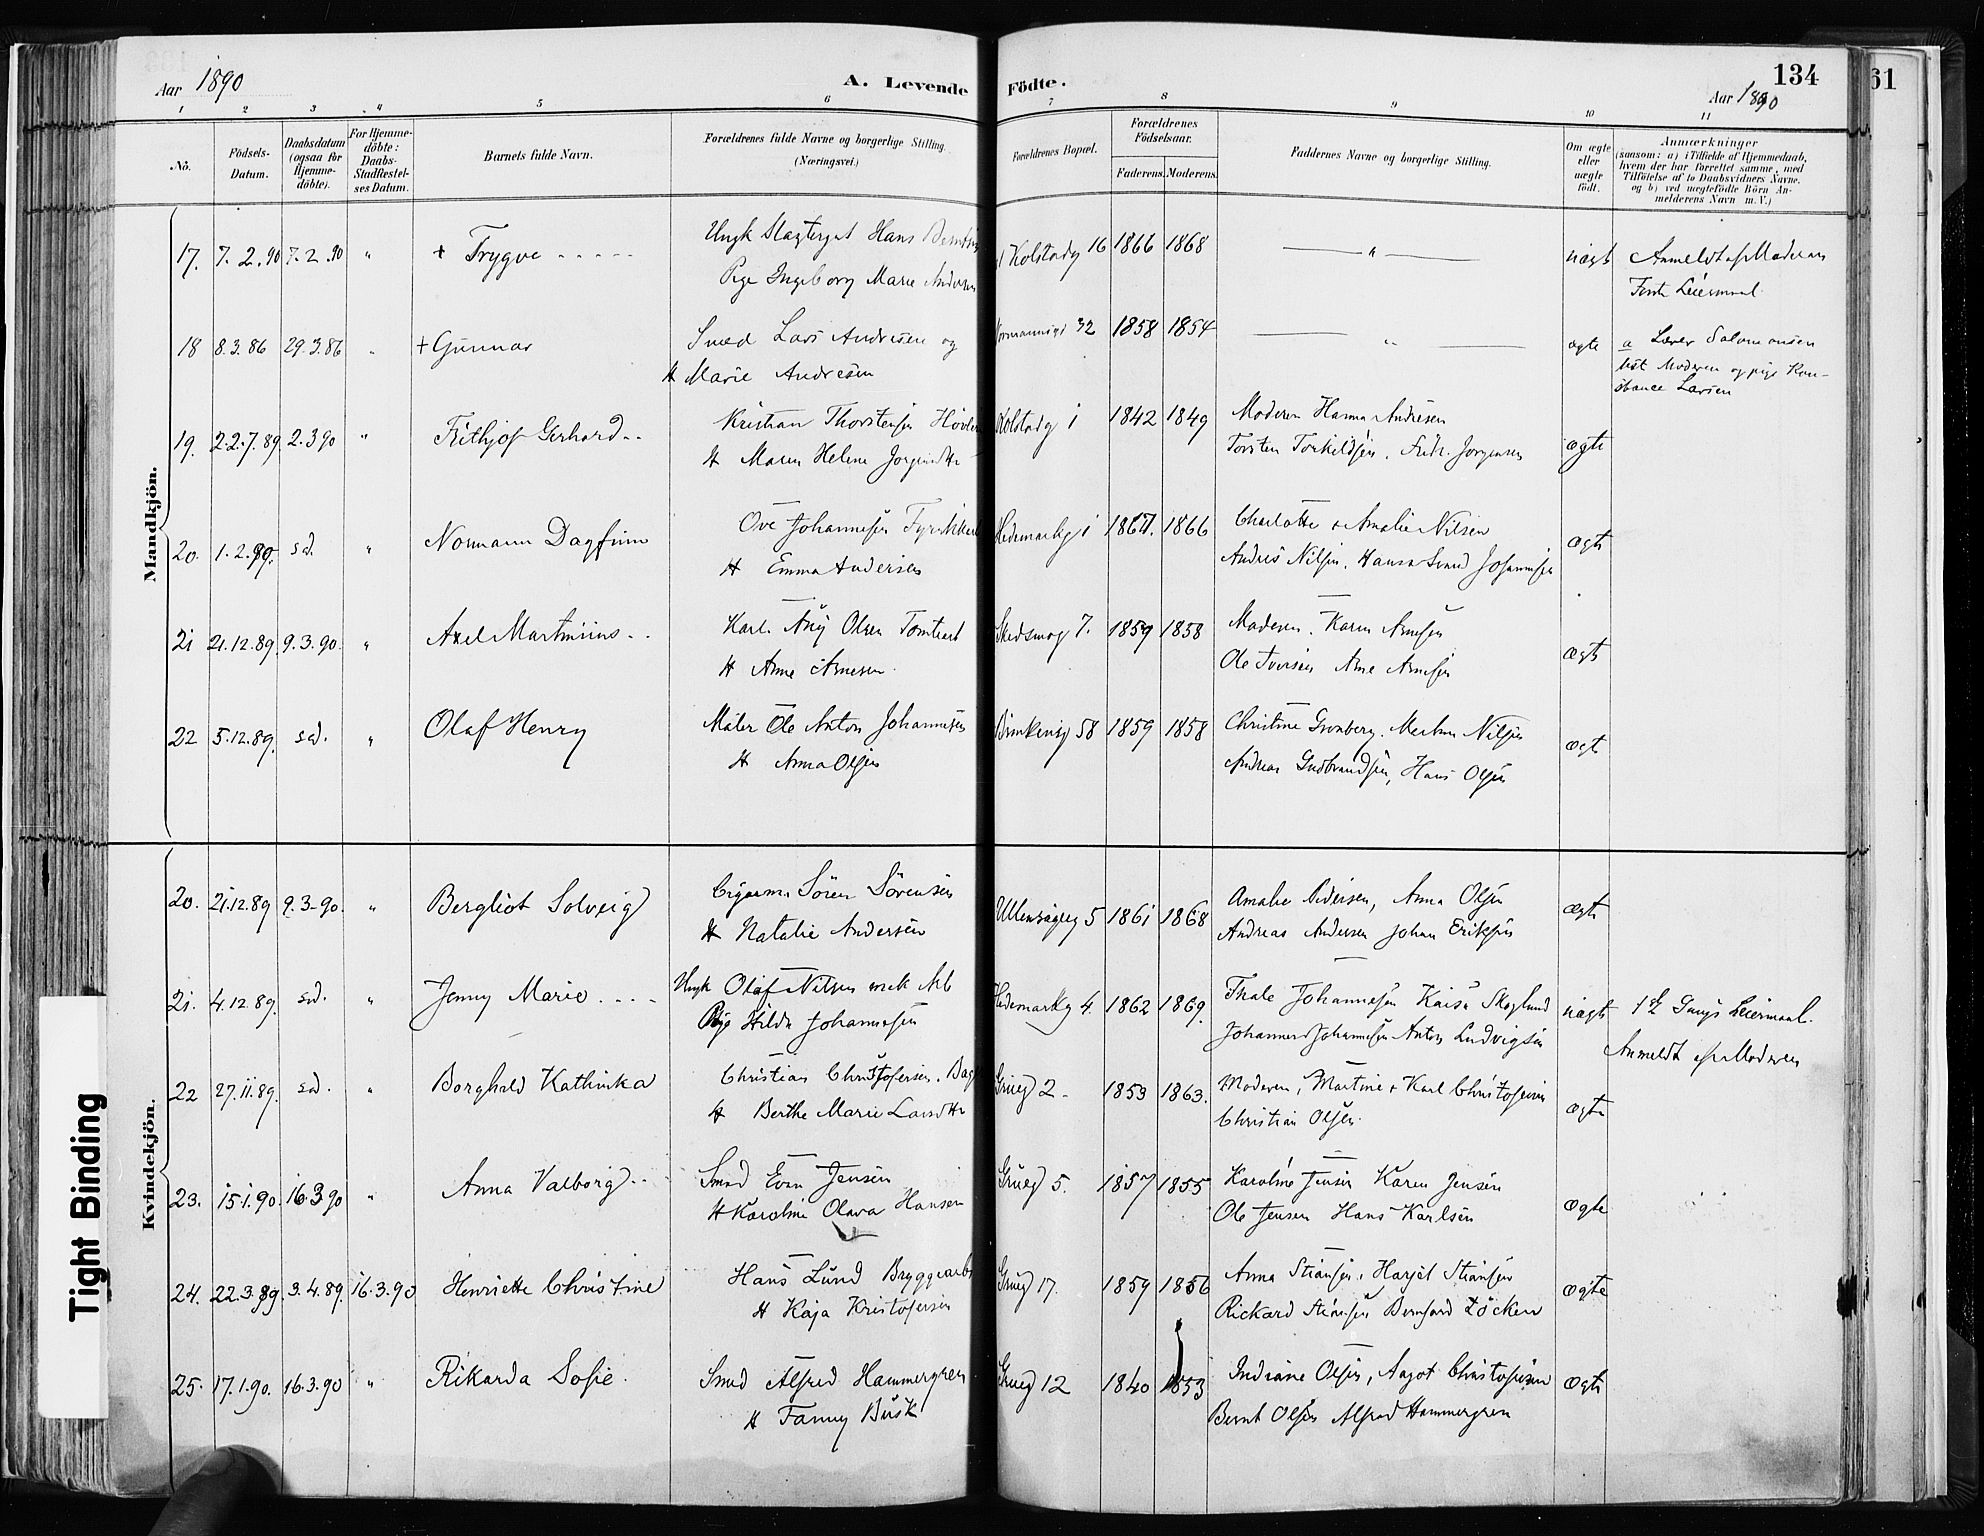 Aar 1890
A. Levende
Födte.
134
Aar 1890
61
1 2 3 4 5 6 7 8 9 10 11
No.
Födsels-Datum.
Daabsdatum (ogsaa for Hjemme-döbte).
For Hjemme-döbte: Daabs-Stadfæstel-ses Datum.
Barnets fulde Navn.
Forældrenes fulde Navne og borgerlige Stilling
(Næringsvei.)
Forældrenes Bopæl.
Forældrenes Födselsaar.
Faderens. Moderens.
Faddernes Navne og borgerlige Stilling.
Om ægte eller uægte födt.
Anmærkninger
(saasom: a) i Tilfælde af Hjemmedaab,
hvem der har forrettet samme, med
Tilföielse af to Daabsvidners Navne,
og b) ved uægtefödte Börn An-
melderens Navn m. V.)
Mandkjön.
17. 7.2.90 7.2.90 " + Trygve - - - - - Ungk Hans Kolstadg 16 1866 1868 " uægt Anmeldt af Moderen
Pige Ingeborg Marie Andersen Leiermaal
18 8.3.86 29.3.86 " + Gunnar Smed Lars Andresen og 32 1858 1854 " ægte a Lærer Salomonsen
H Marie Andresen test Moderen og pige Kon-
stance Larsen
19. 22.7.89. 2.3.90 " Frithjof Gerhard - - Kristian Thorstensen Kolstadg 1 1842 1849 Moderen Hanna Andresen ægte
H Maren Helene Torsten Torkildsen, Fredr. Jorgensen
20. 1.2.89. sd. " Normann Dagfinn Ove Johannesen Hedemarkg 1 1867. 1866 Charlotte & Amalie Nilsen ægte
H Emma Andersen Andres Nilsen, Johannesen
21 21.12.89. 9.3.90. " Axel Martinius - - Karl Aug Olsen Skedsmog 7. 1859 1858 Moderen, Karen Arnesen ægte
H Anne Arnesen Ole Iversen Arne Arnesen
22 5.12.89. sd. " Olaf Henry Maler Ole Anton Johannesen 58 1859 1858 Christine Gronberg, Nilsen ægte
H Anna Olsen Andreas Gudbrandsen, Hans Olsen
Kvindekjön.
20. 21.12.89 9.3.90. " Bergliot Solveig Cigarm. Sören Sörensen Ullensagerg 5 1861 1868 Amalie Pedersen, Anna Olsen ægte
H Natalie Andersen Andreas Andersen Johan Eriksen
21. 4.12.89. sd. " Jenny Marie - - - - Ungk Olaf Nilsen mek Arb Hedemarkg 4. 1862 1869. Thale Johannesen Kaisa Skoglund uægte 1ste Gangs Leiermaal.
Pige Hilda Johannesen Johannes Johannesen Anton Ludvigsen Anmeldt af Moderen
22 27.11.89. sd. " Borghild Kathinka Christian Christofersen, Grueg 2 - 1853 1863. Moderen, Martine & Karl Christofersen ægte
H Berthe Marie Christian Olsen
23. 15.1.90. 16.3.90 " Anna Valborg - - Smed Even Jensen Grueg 5. 1857 1855 Karoline Jensen Karen Jensen ægte
H Karoline Olava Hansen Ole Jensen Hans Karlsen
24. 22.3.89. 3.4.89. 16.3.90 Henriette Christine Hans Lund Bryggearb Grueg 17. 1859 1856 Anna Stiansen, ægte
H Kaja Kristofersen Rickard Stiansen Löcken
25. 17.1.90. 16.3.90 " Rikarda Sofie. Smed Alfred Hammergren Grueg 12 1840 1853 Indiane Olsen, Aagot Christofersen ægte
H Fanny Busk Bernt Olsen Alfred Hammergren
Tight Binding